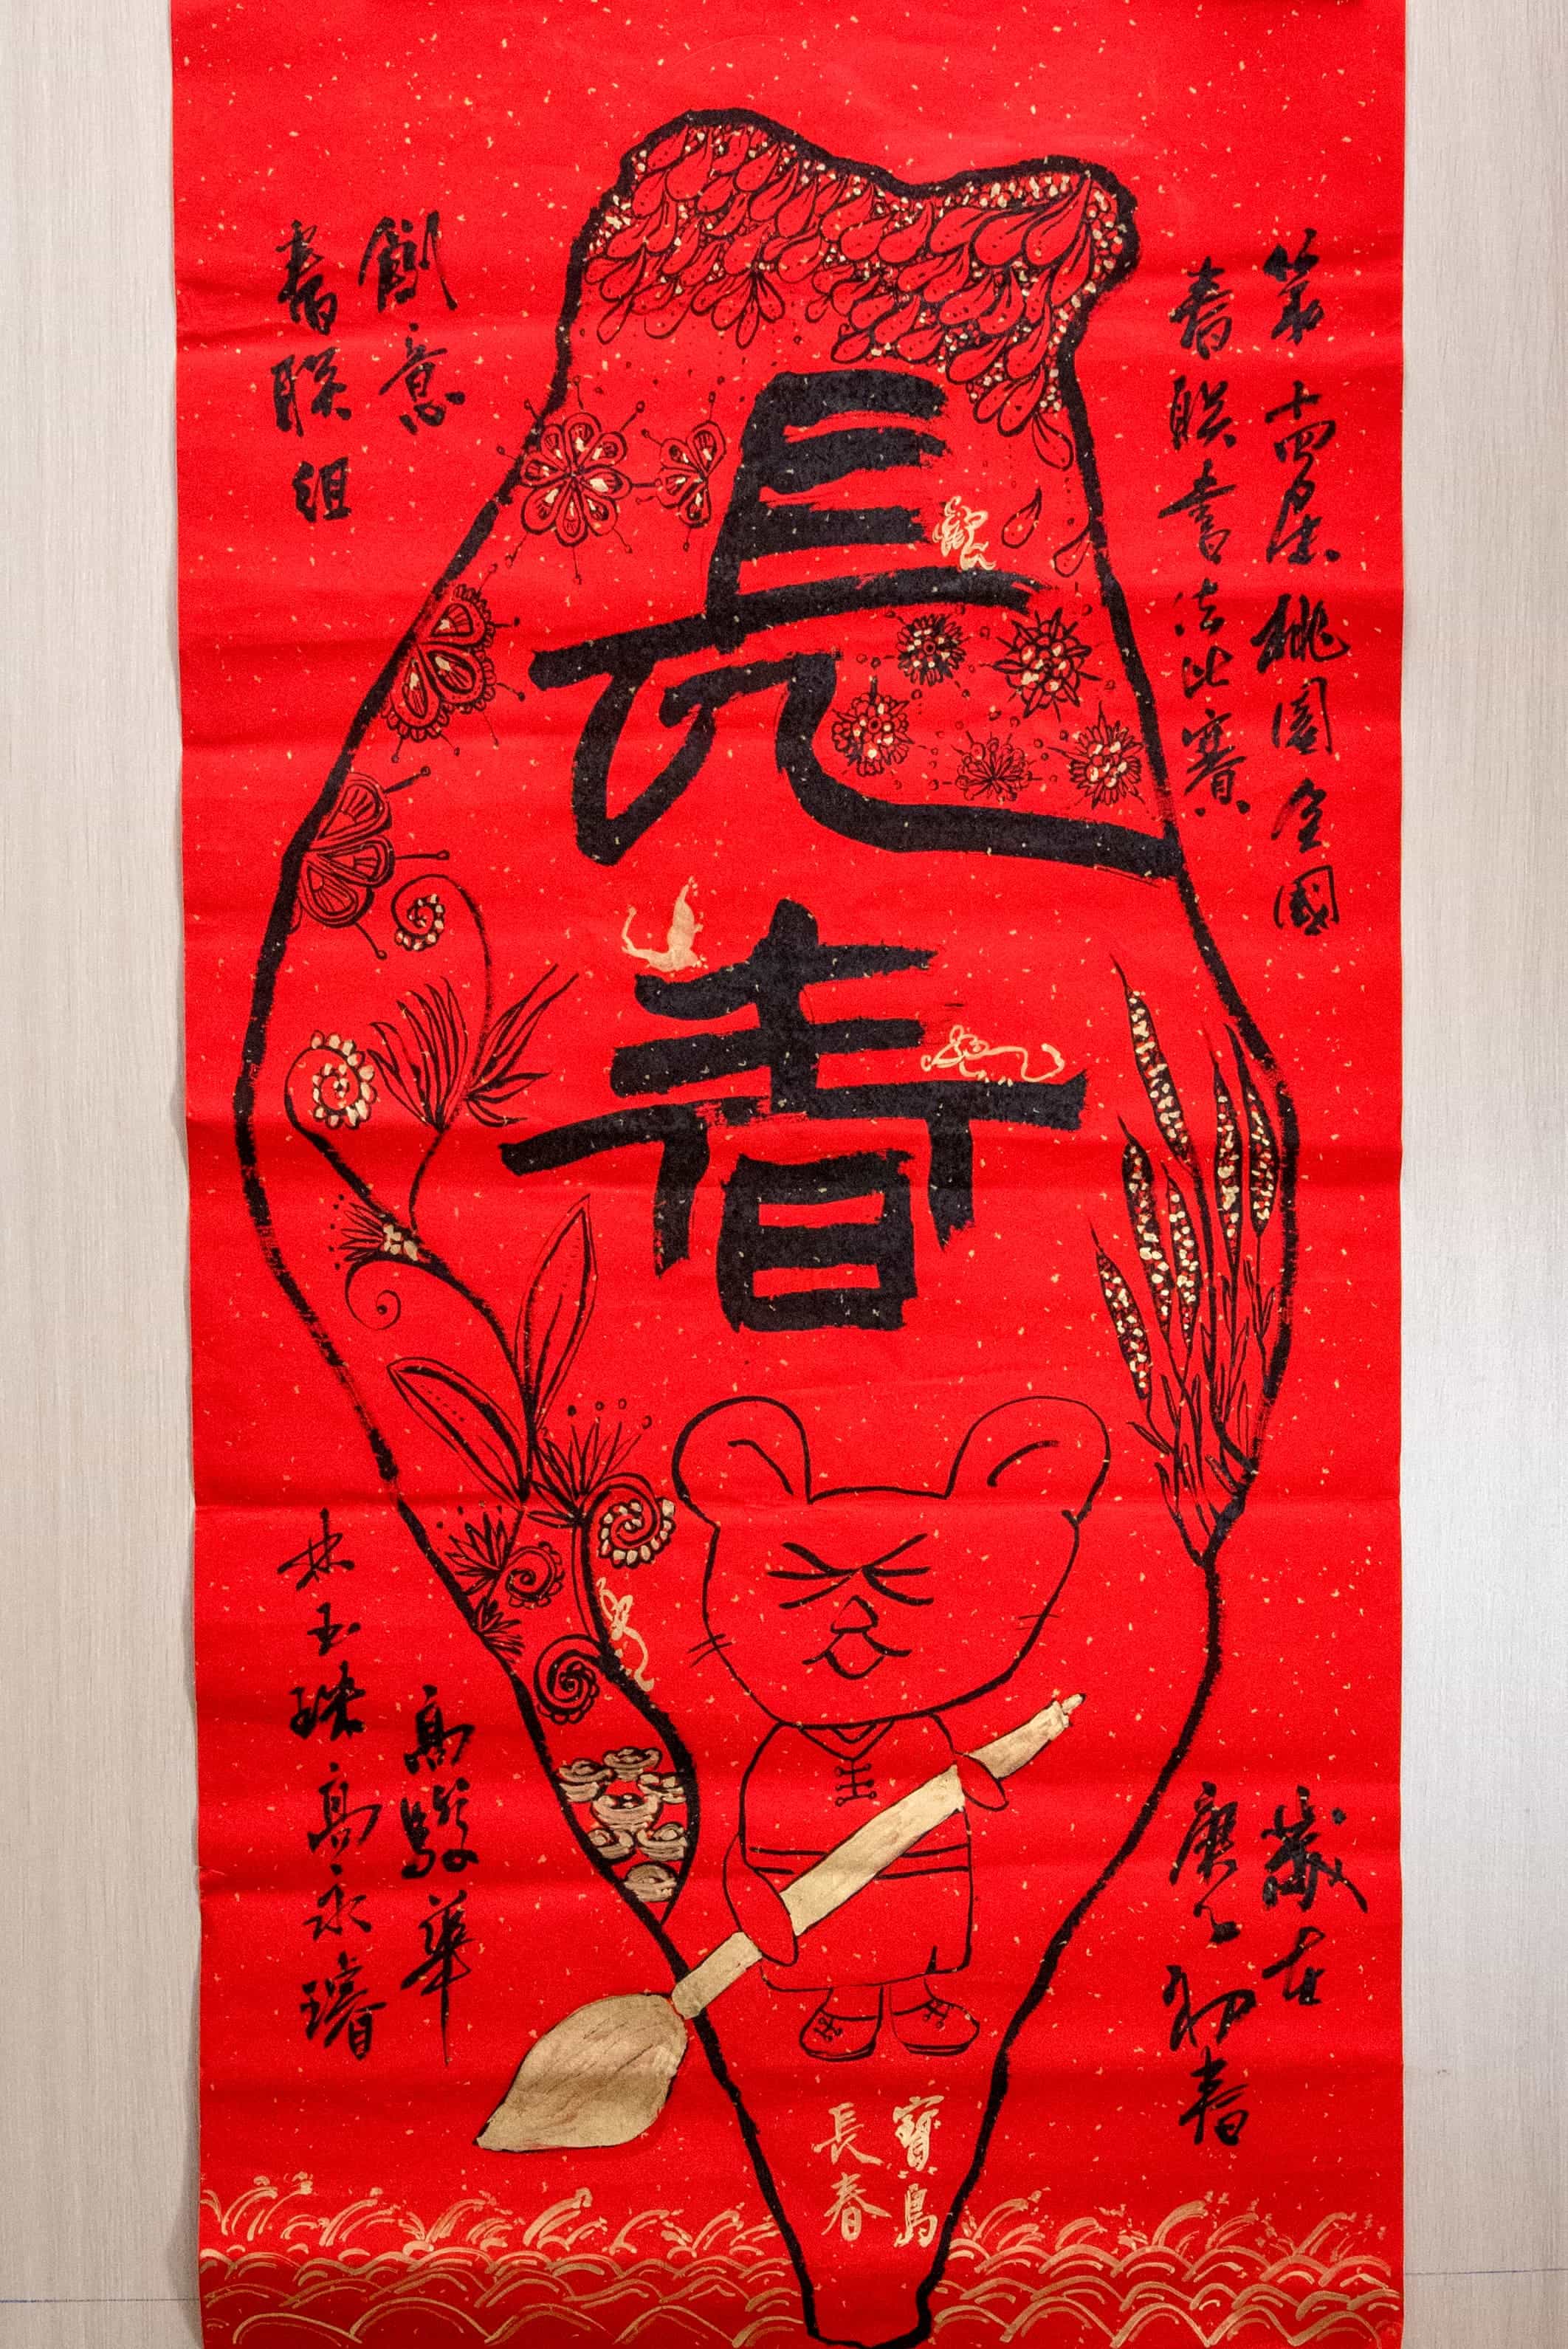 第十四屆桃園全國
春聯書法比賽
長春
創意
春聯組
歲在
庚子初春
寶島
長春
高駿華
林玉珠高永璿